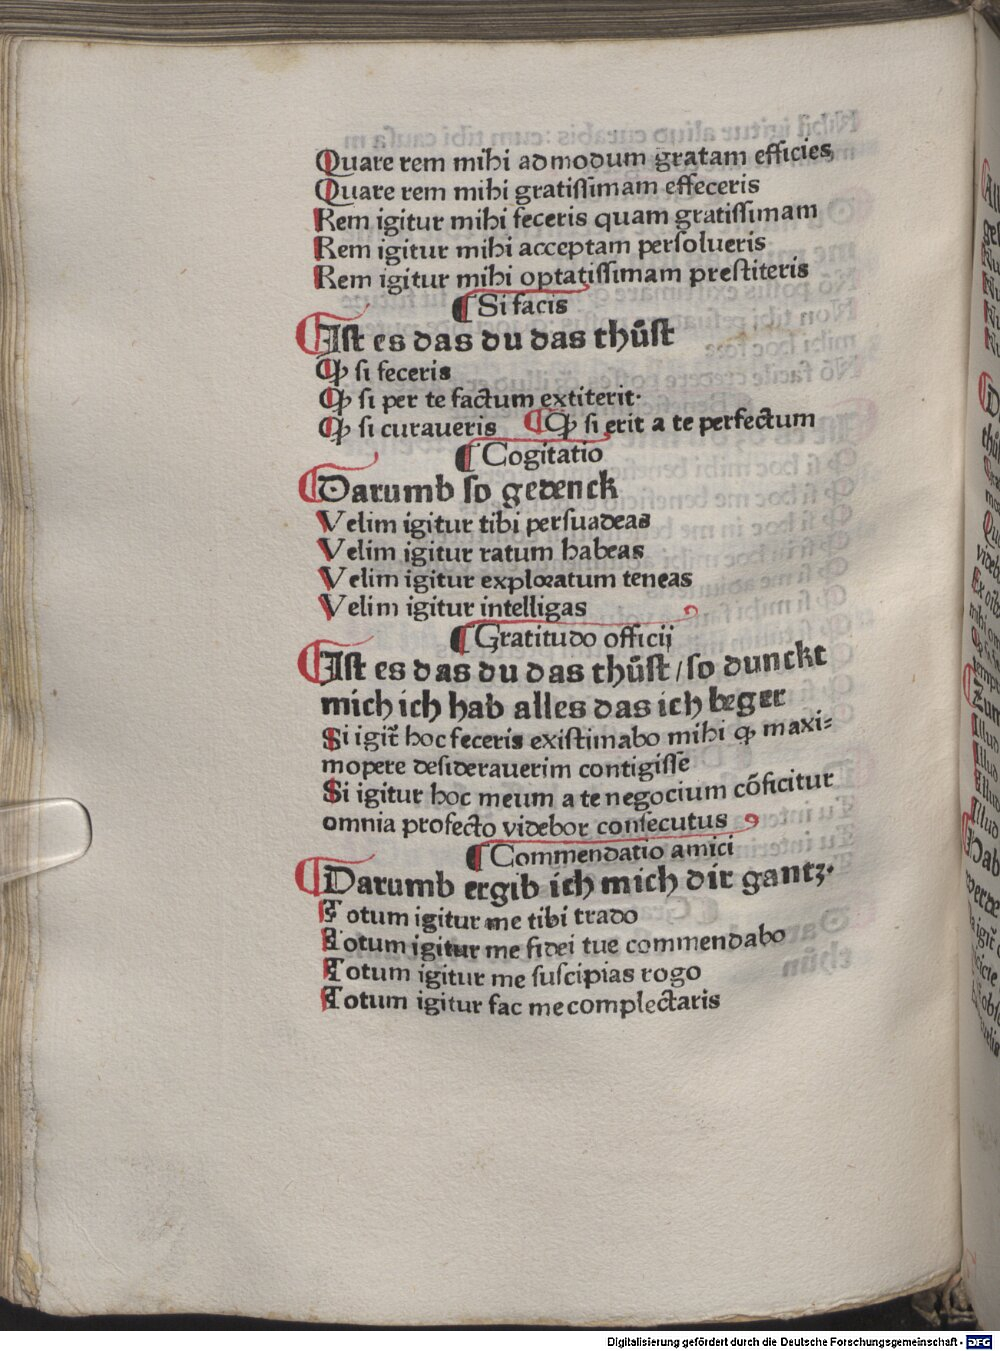 Quare rem mihi admodum gratam efficies
Quare rem mihi gratiſſimam effeceris
Rem igitur mihi feceris quam gratiſſimam
Rem igitur mihi acceptam perſolueris
Rem igitur mihi optatiſſimam preſtiteris
¶ Si facis
¶ Iſt es das du das thuͦſt
Ꝙ ſi feceris
Ꝙ ſi per te factum extiterit·
Ꝙ ſi curaueris ¶ Ꝙ ſi erit a te perfectum
¶ Cogitatio
¶ Darumb ſo gedenck
Velim igitur tibi perſuadeas
Velim igitur ratum habeas
Velim igitur exploꝛatum teneas
Velim igitur intelligas
¶ Gratitudo officij
¶ Iſt es das du das thuͦſt / ſo dunckt
mich ich hab alles das ich beger
Si igit̃ hoc feceris exiſtimabo mihi ꝙ maxi⸗
mopere deſiderauerim contigiſſe
Si igitur hoc meum a te negocium cõficitur
omnia profecto videbor conſecutus
¶ Commendatio amici
¶ Darumb ergib ich mich dir gantz·
Totum igitur me tibi trado
Totum igitur me fidei tue commendabo
Totum igitur me ſuſcipias rogo
Totum igitur fac me complectaris
Digitalisierung gefördert durch die Deutsche Forschungsgemeinschaft - DFG